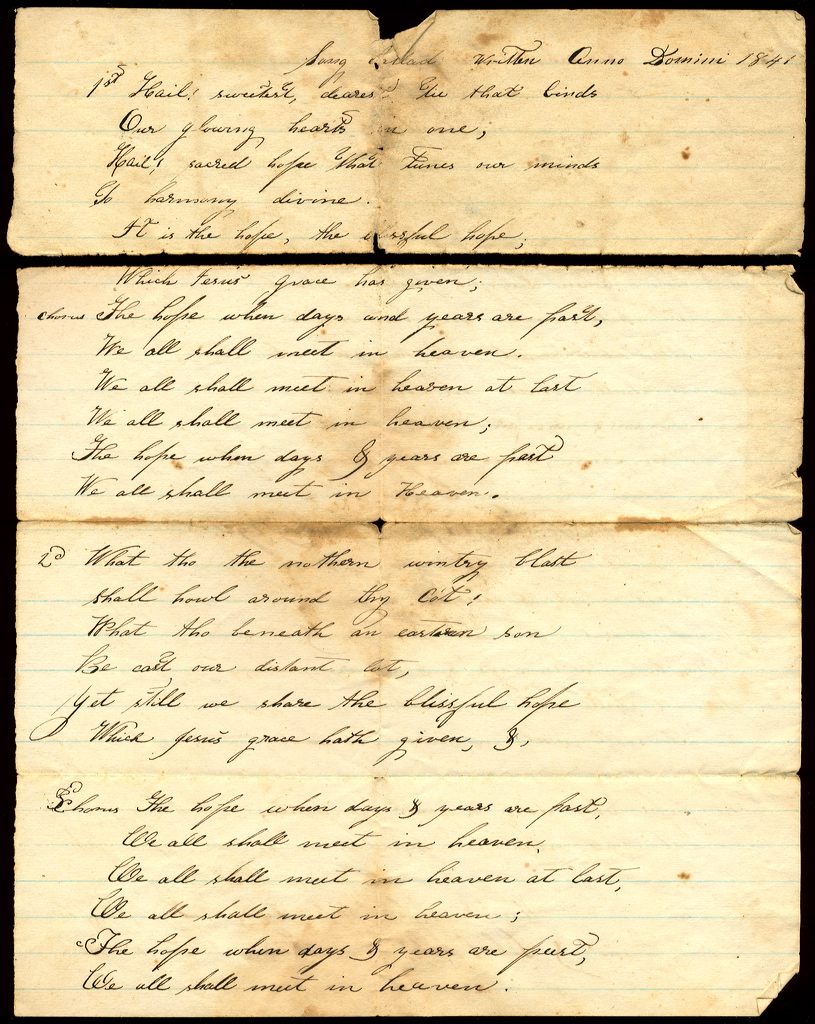 Song Ballad Written Anno Domini 1841
1st Hail! sweetest, dearest tie that binds
Our glowing hearts in one,
Hail! sacred hope that tunes our minds
To harmony divine.
It is the hope, the blissful hope,
Which Jesus grace has given;
Chorus The hope when days and years are past,
We all shall meet in heaven.
We all shall meet in heaven at last
We all shall meet in heaven;
The hope when days & years are past
We all shall meet in Heaven.
2d What tho the nothern wintry blast
shall howl around thy Cot!
What tho beneath an eastern son
Be cast our distant lot,
Yet still we share the blissful hope
Which Jesus grace hath given, &,
Chorus The hope when days & years are past,
We all shall meet in heaven.
We all shall meet in heaven at last,
We all shall meet in heaven;
The hope when days & years are past,
We all shall meet in heaven.